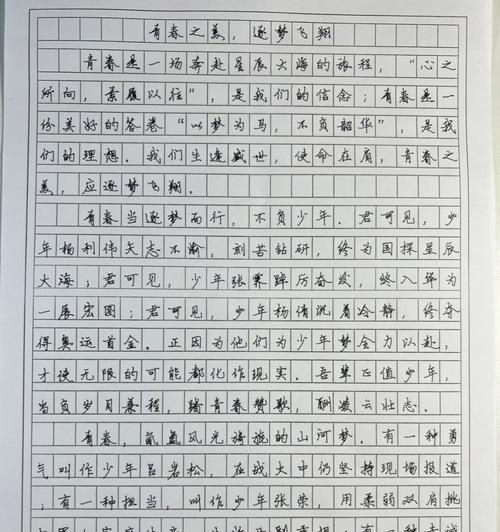 青春之美，逐梦飞翔
青春是一场奔赴星辰大海的旅程，“心之
所向，素履以往”，是我们的信念；青春是一
份美好的答卷“以梦为马，不负韶华”，是我
们的理想。我们生逢盛世，使命在肩，青春之
美，应逐梦飞翔。
青春当逐梦而行，不负少年。君可见，少
年杨利伟矢志不渝，刻苦钻研，终为国探星辰
大海；君可见，少年张霁踔厉奋发，终入华为
一展宏图；君可见，少年杨倩沉着冷静，终夺
得奥运首金。正因为他们为少年梦全力以赴，
才使无限的可能都化作现实。吾辈正值少年，
当负岁月兼程，踏青春赞歌，酬凌云壮志。
青春，氤氲风光旖旎的山河梦。有一种勇
气叫作少年吕岩松，在战火中仍坚持现场报道
；有一种担当，叫作少年张荣，用柔弱双肩挑